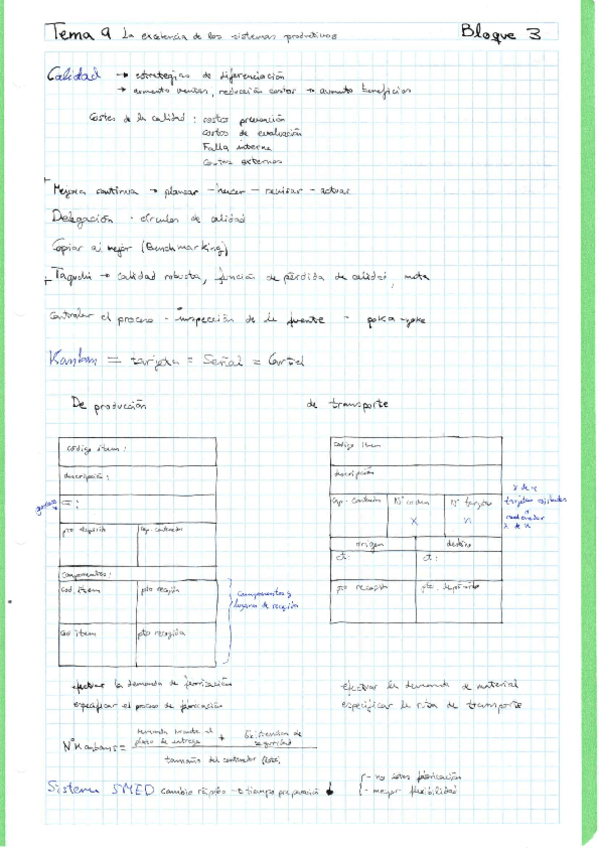 Tema 9 La excelencia de los sistemas productivos Bloque 3
Calidad → estrategias de diferenciación
→ aumento ventas, reducción costos → aumento beneficios
Costes de la calidad : costos prevención
costos de evaluación
Falla interna
Costos externos
Mejora continua → planear - hacer - revisar - actuar
Delegación - círculos de calidad
Copiar al mejor (Benchmarking)
Taguchi → calidad robusta, función de pérdida de calidad, meta
Controlar el proceso - inspección de la fuente - poka-yoke
Kanban = tarjeta = Señal = Cartel
De producción de transporte
código ítem :
descripción :
pto depósito cap. contenedor
Componentes :
cod. ítem pto recogida
cod ítem pto recogida
Componentes y
lugares de recogida
código ítem
descripción
cap. contenedor Nº orden Nº tarjetas
x n
x de n
tarjetas existentes
x de n
origen destino
ct: ct:
pto recogida pto. depósito
efectivar la demanda de fabricación
especificar el proceso de fabricación
efectivar la demanda de material
especificar la ruta de transporte
Nº Kanbans = Demanda durante el plazo de entrega + Existencias de seguridad
tamaño del contenedor
Sistema SMED cambio rápido → tiempo preparación ↓
- mayor flexibilidad